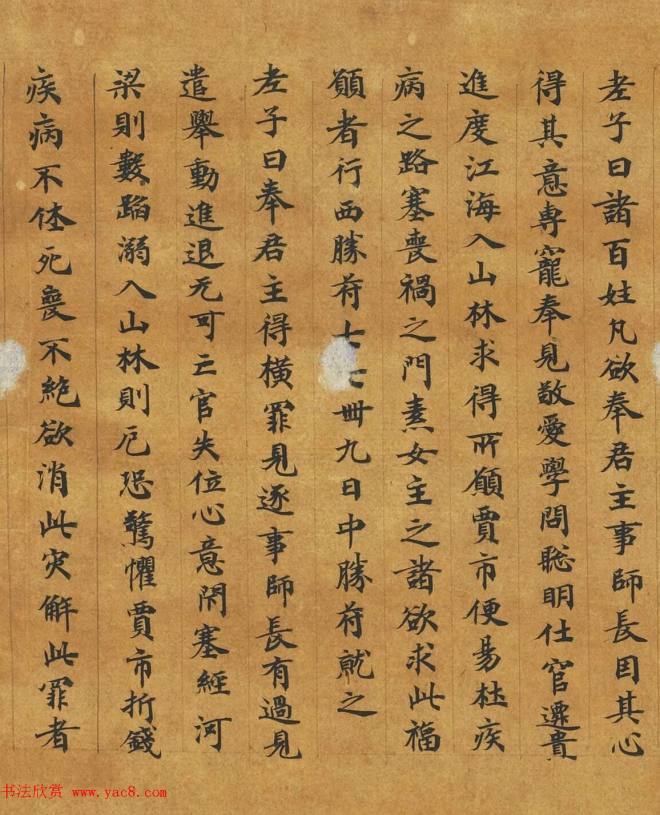 老子曰諸百姓凡欲奉君主事師長因其心
得其意專寵奉見敬愛學問聡明仕宦遷貴
進度江海入山林求得所願賈市便易杜疾
病之路塞喪禍之門素女主之諸欲求此福
願者行西勝符七七卌九日中勝符就之
老子曰奉君主得橫罪見逐事師長有過見
遣舉動進退元可亡官失位心意閇塞經河
梁則數蹈溺入山林則厄恐驚懼賈市折錢
疾病不体死喪不絕欲消此灾解此罪者
书法欣赏 www.yac8.com